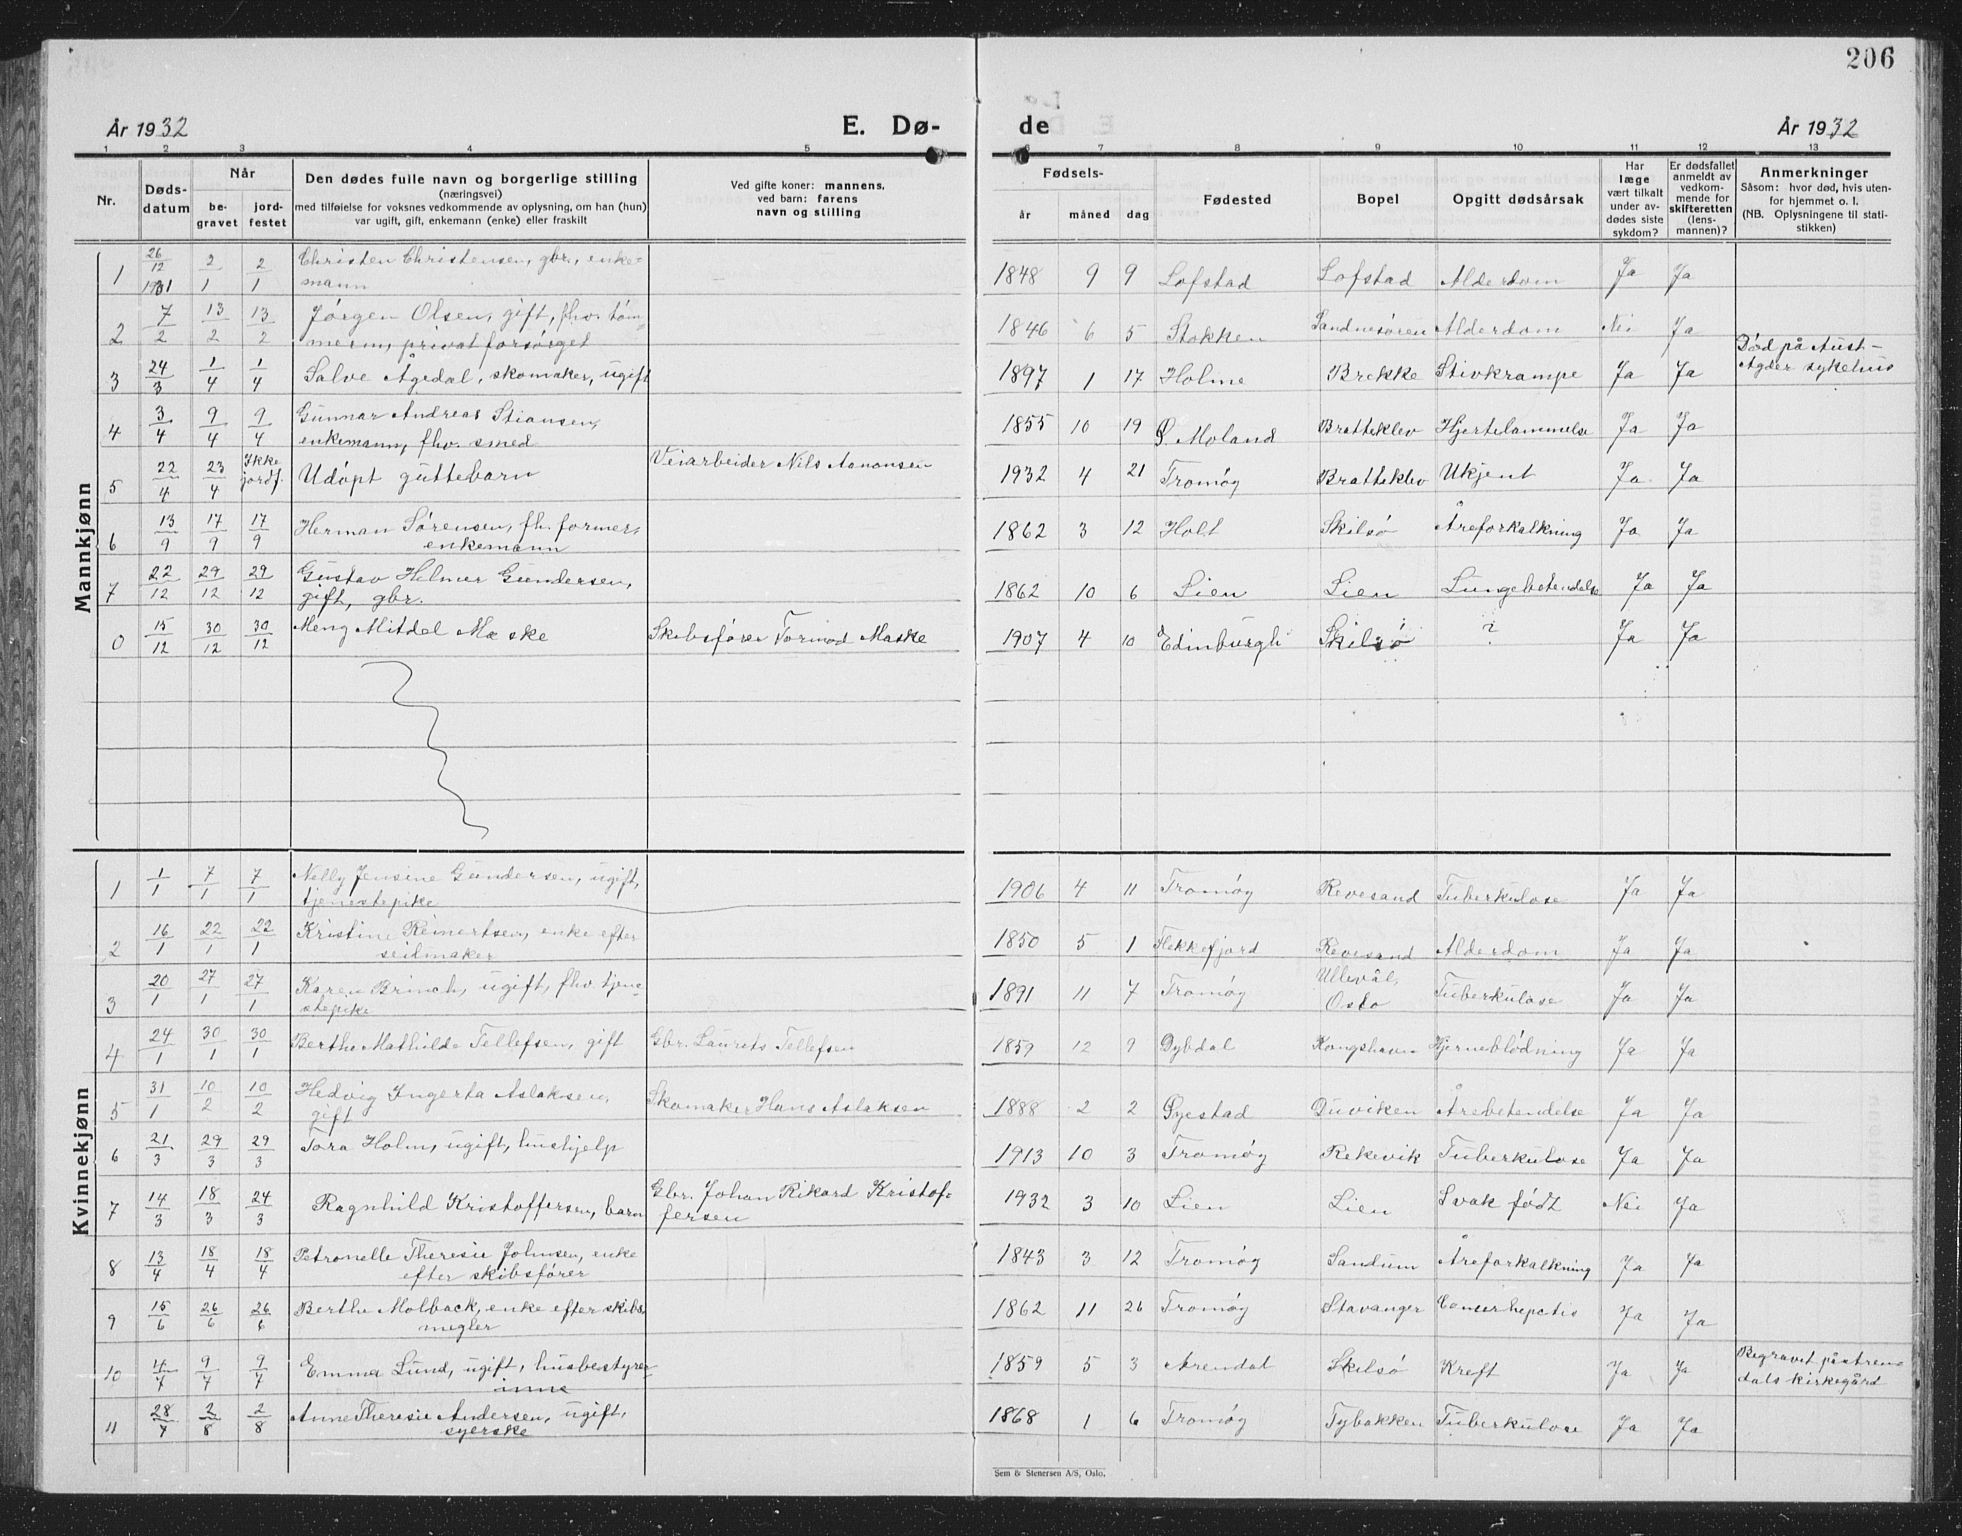 206
År 1932 E. Dø- de År 1932
1 2 3 4 5 6 7 8 9 10 11 12 13
Nr. Dødsdatum Når begravet jordfestet
Den dødes fulle navn og borgerlige stilling
(næringsvei)
med tilføielse for voksnes vedkommende av oplysning, om han (hun)
var ugift, gift, enkemann (enke) eller fraskilt
Ved gifte koner: mannens.
ved barn: farens
navn og stilling
Fødsels-
år måned dag
Fødested
Bopel
Opgitt dødsårsak
Har
læge
vært tilkalt
under av-
dødes siste
sykdom?
Er dødsfallet
anmeldt av
vedkom-
mende for
skifteretten
(lens-
mannen)?
Anmerkninger
Såsom: hvor død, hvis uten-
for hjemmet o. l.
(NB. Oplysningene til stati-
stikken)
Mannkjønn
1 26/12 1931 2/1 2/1 Christen Christensen, gbr., enke= 1848 9 9 Lofstad Lofstad Alderdom Ja Ja
mann
2 7/2 13/2 13/2 Jørgen Olsen, gift, fhv. tøm= 1846 6 5 Stokken Sandnesøren Alderdom Nei Ja
merm, privat forsørget
3 24/3 1/4 1/4 Salve Ågedal, skomaker, ugift 1897 1 17 Holme Brekke Stivkrampe Ja Ja Død på Aust-
Agder sykehus
4 3/4 9/4 9/4 Gunnar Andreas Stiansen, 1855 10 19 Ø. Moland Bratteklev Hjertelammelse Ja Ja
enkemann, fhv. smed
5 22/4 23/4 Ikke jordf. Udøpt guttebarn Veiarbeider Nils Aanonsen 1932 4 21 Tromøy Bratteklev Ukjent Ja Ja
6 13/9 17/9 17/9 Herman Sørensen, fh. former, 1862 3 12 Holt Skilsø Åreforkalkning Ja Ja
enkemann
7 22/12 29/12 29/12 Gustav Helmer Gundersen, 1862 10 6 Lien Lien Lungebetendelse Ja Ja
gift, gbr.
0 15/12 30/12 30/12 Meng Mitdel Maske Skibsfører Tormod Maske 1907 4 10 Edinburgh Skilsø ? Ja Ja
Kvinnekjønn
1 1/1 7/1 7/1 Nelly Jensine Gundersen, ugift, 1906 4 11 Tromøy Revesand Tuberkulose Ja Ja
tjenestepike
2 16/1 22/1 22/1 Kristine Reinertsen, enke efter 1850 5 1 Flekkefjord Revesand Alderdom Ja Ja
seilmaker
3 20/1 27/1 27/1 Karen Brinch, ugift, fhv. tjene= 1891 11 7 Tromøy Ullevål, Oslo Tuberkulose Ja Ja
stepike
4 24/1 30/1 30/1 Berthe Mathilde Tellefsen, gift Gbr. Laurits Tellefsen 1859 12 9 Dybdal Kongshavn Hjerneblødning Ja Ja
5 31/1 10/2 10/2 Hedvig Ingerta Aslaksen, Skomaker Hans Aslaksen 1888 2 2 Øyestad Duviken Årebetendelse Ja Ja
gift
6 21/3 29/3 29/3 Tora Holm, ugift, hushjelp 1913 10 3 Tromøy Rekevik Tuberkulose Ja Ja
7 14/3 18/3 24/3 Ragnhild Kristoffersen, barn Gbr. Johan Rikard Kristof= 1932 3 10 Lien Lien Svak født Nei Ja
fersen
8 13/4 18/4 18/4 Petronelle Theresie Johnsen, enke 1843 3 12 Tromøy Sandum Åreforkalkning Ja Ja
efter skibsfører
9 15/6 26/6 26/6 Berthe Molback, enke efter skibs, 1862 11 26 Tromøy Stavanger Ja Ja
megler
10 4/7 9/7 9/7 Emma Lund, ugift, husbestyrer 1859 5 3 Arendal Skilsø Kreft Ja Ja Begravet på Aren=
inne dals kirkegård
11 28/7 2/8 2/8 Anne Theresie Andersen, ugift, 1868 1 6 Tromøy Tybakken Tuberkulose Ja Ja
syerske
Sem & Stenersen A/S, Oslo.